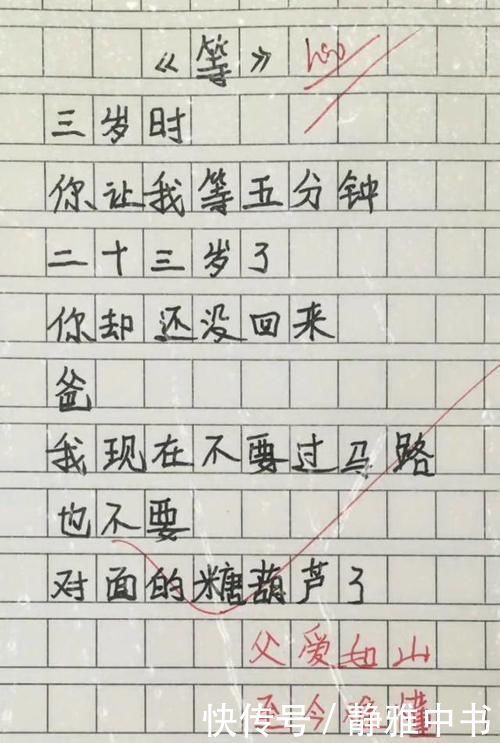 《等》 100
三岁时
你让我等五分钟
二十三岁了
你却还没回来
爸
我现在不要过马路
也不要
对面的糖葫芦了
父爱如山
至今 懂
快传号/静雅中书